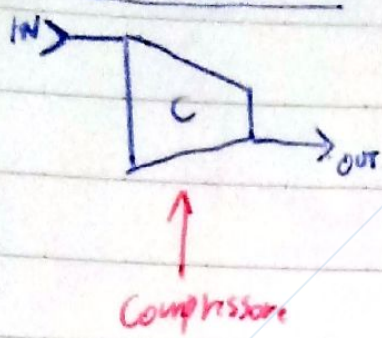 IN
C
OUT
Compressore